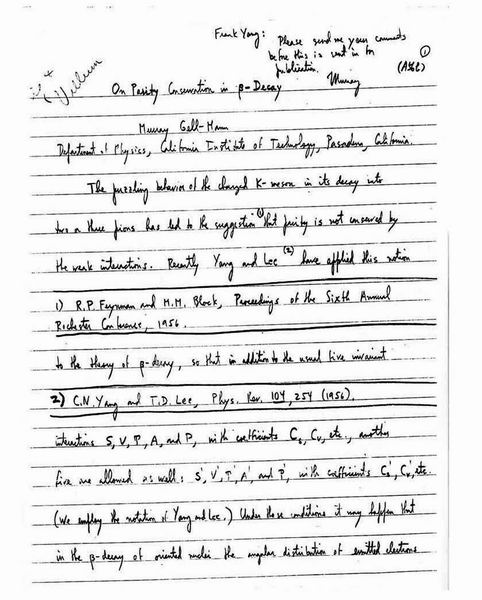 Frank Yang: Please send me your comments
before this is sent in for
publication.
Murray
①
(A&E)
Vellum
On Parity Conservation in β-Decay
Murray Gell-Mann
Department of Physics, California Institute of Technology, Pasadena, California.
The puzzling behavior of the charged K-meson in its decay into
two or three pions has led to the suggestion (1) that parity is not conserved by
the weak interactions. Recently Yang and Lee (2) have applied this notion
1) R.P. Feynman and M.M. Block, Proceedings of the Sixth Annual
Rochester Conference, 1956.
to the theory of β-decay, so that in addition to the usual five invariant
2) C.N. Yang and T.D. Lee, Phys. Rev. 104, 254 (1956).
interactions S, V, T, A, and P, with coefficients Cs, Cv, etc., another
five are allowed as well: S', V', T', A', and P', with coefficients Cs', Cv', etc.
(We employ the notation of Yang and Lee.) Under these conditions it may happen that
in the β-decay of oriented nuclei the angular distribution of emitted electrons